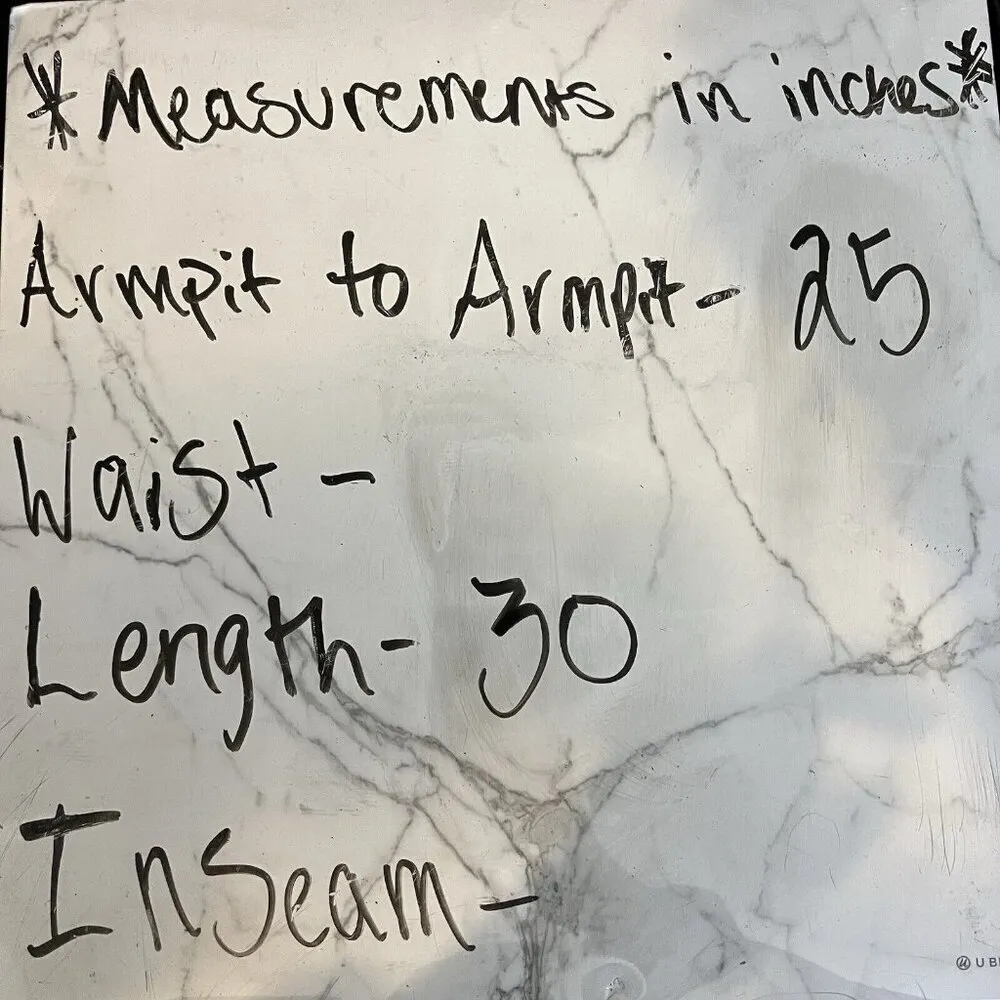 *Measurements in inches*
Armpit to Armpit- 25
Waist -
Length- 30
Inseam -